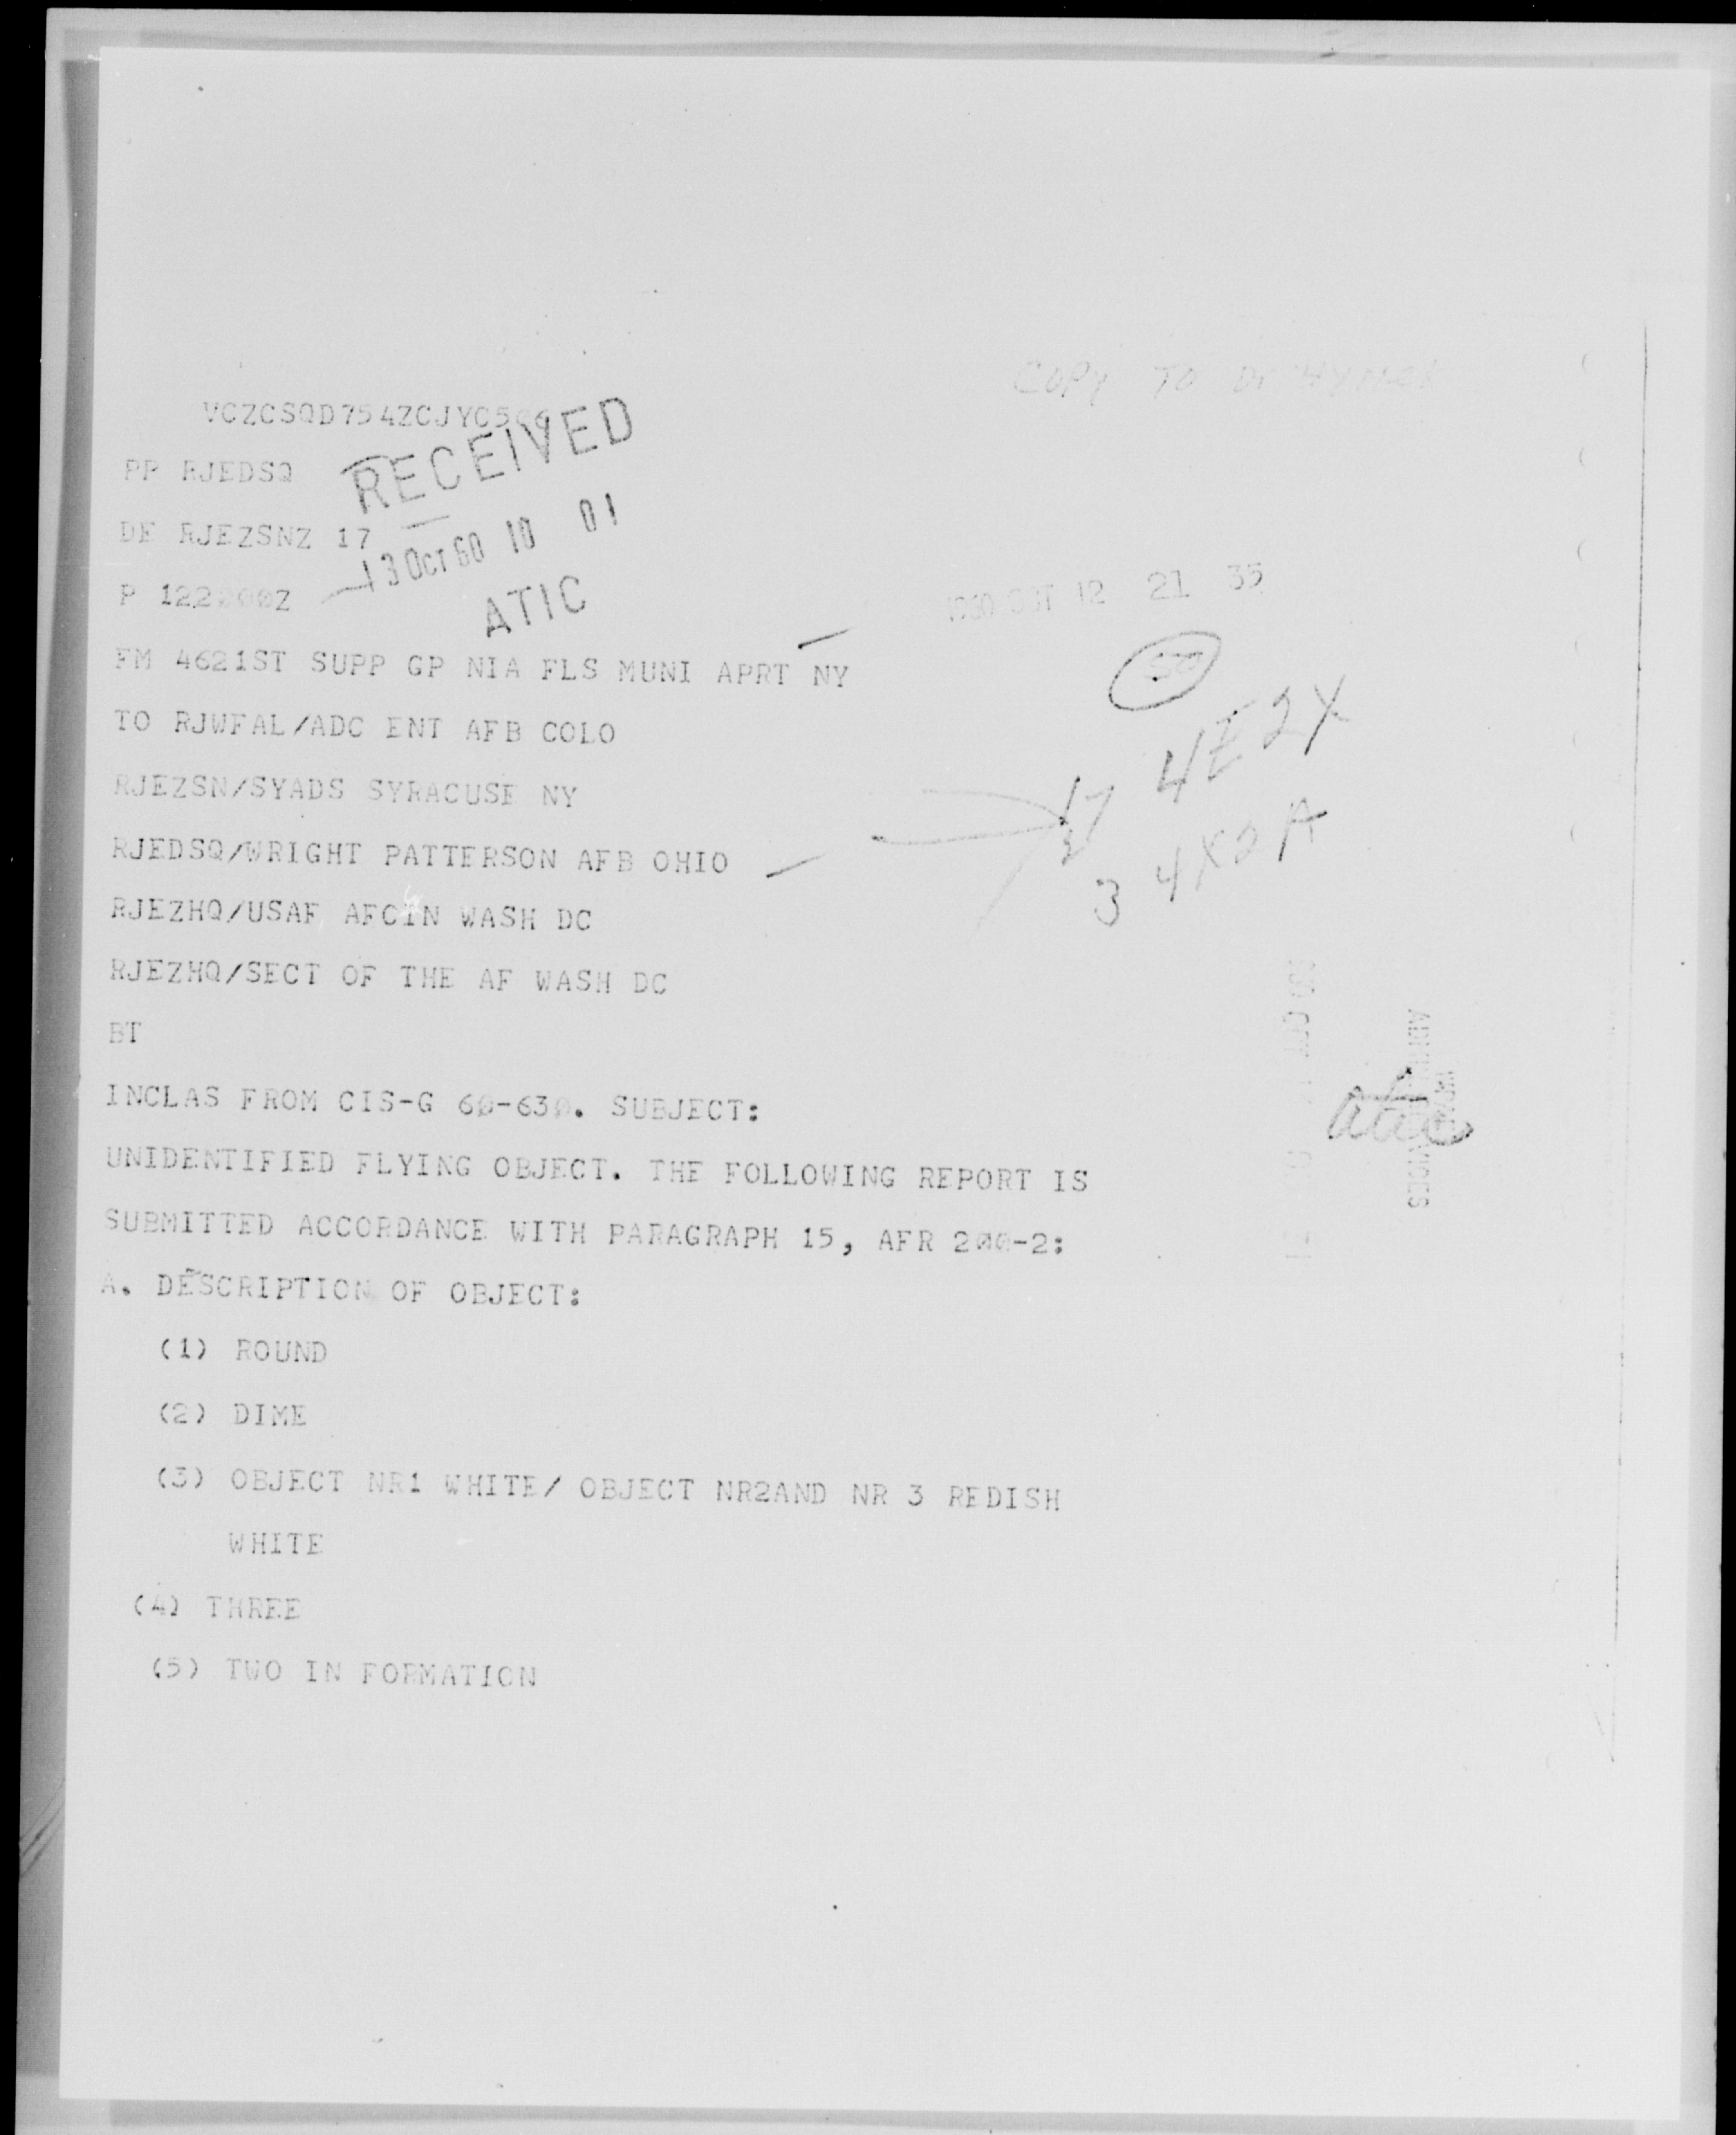 COPY TO Dr HYNEK
VCZCSQD754ZCJYC566
RECEIVED
PP RJEDSQ
DE RJEZSNZ 17
13 OCT 60 10 01
P 122000Z
ATIC
1960 OCT 12 21 35
FM 4621ST SUPP GP NIA FLS MUNI APRT NY
TO RJWFAL/ADC ENT AFB COLO
4E2X
RJEZSN/SYADS SYRACUSE NY
17
RJEDSQ/WRIGHT PATTERSON AFB OHIO
3 4X2A
RJEZHQ/USAF AFCIN WASH DC
RJEZHQ/SECT OF THE AF WASH DC
BT
INCLAS FROM CIS-G 60-630. SUBJECT:
atic
UNIDENTIFIED FLYING OBJECT. THE FOLLOWING REPORT IS
SUBMITTED ACCORDANCE WITH PARAGRAPH 15, AFR 200-2:
A. DESCRIPTION OF OBJECT:
(1) ROUND
(2) DIME
(3) OBJECT NR1 WHITE/ OBJECT NR2AND NR 3 REDISH
WHITE
(4) THREE
(5) TWO IN FORMATION